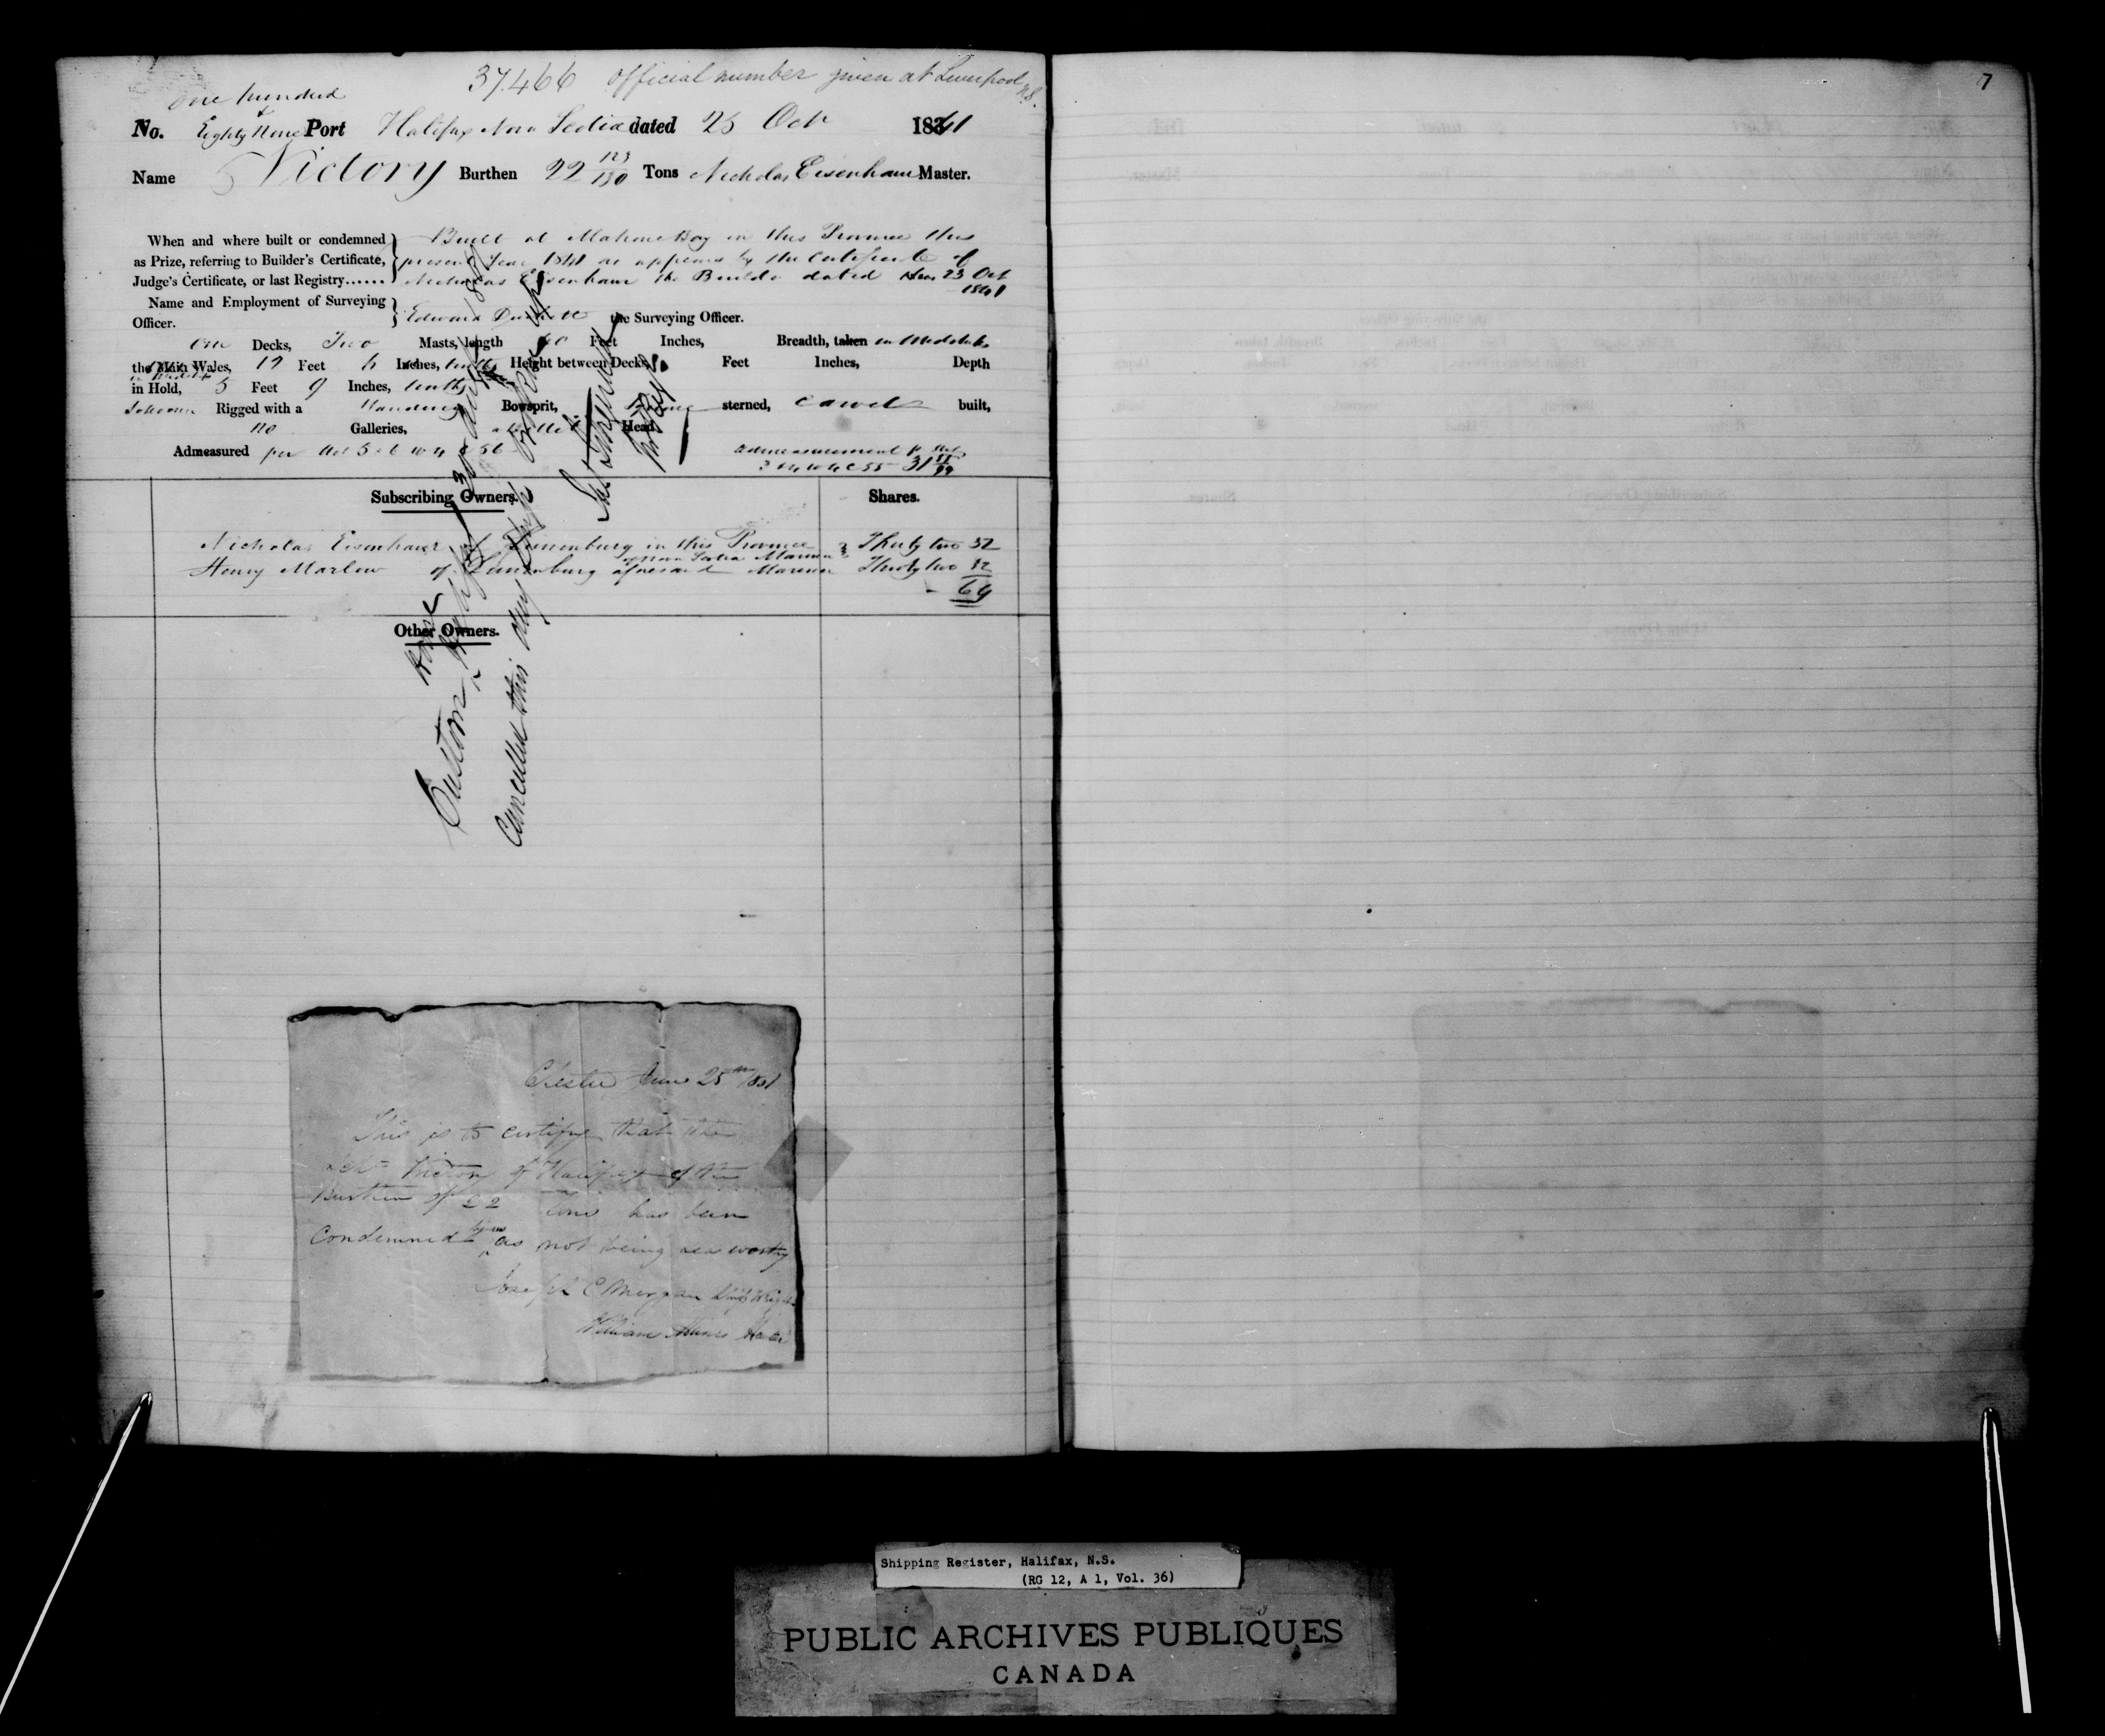 37.466 official number given at Liverpool N.S.
7
one hundred
&
No. Eighty Nine Port Halifax Nova Scotia dated 25 Oct 1841
Name Victory Burthen 22 123/130 Tons Nicholas Eisenhaur Master.
When and where built or condemned } Built at Mahone Bay in this Province this
as Prize, referring to Builder's Certificate, present Year 1841 as appears by the Certificate of
Judge's Certificate, or last Registry...... Nicholas Eisenhaur the Builder dated 23 Oct
1841
Name and Employment of Surveying
Officer. } Edward the Surveying Officer.
One Decks, Two Masts, length 40 Feet Inches, Breadth, taken in Midships
the Main Wales, 12 Feet 6 Inches, tenths Height between Decks, Feet Inches, Depth
in Hold, 5 Feet 9 Inches, tenths
Schooner Rigged with a Standing Bowsprit, sterned, Carvel built,
no Galleries, Head
Admeasured per Act 5 & 6 W 4 C 56
3 & 4 W 4 C 55 31
Subscribing Owners. Shares.
Nicholas Eisenhaur of Lunenburg in this Province Thirty two 32
of Nova Scotia Mariner
Henry Marlow of Lunenburg aforesaid Mariner Thirty two 32
64
Other Owners.
Custom House Halifax 30
Cancelled this day
Chester June 25th 1851
This is to certify that the
Schr Victory of Halifax of the
Burthen of 22 Tons has been
by us
Condemned as not being sea worthy
Joseph C Morgan
William
Shipping Register, Halifax, N.S.
(RG 12, A 1, Vol. 36)
PUBLIC ARCHIVES PUBLIQUES
CANADA